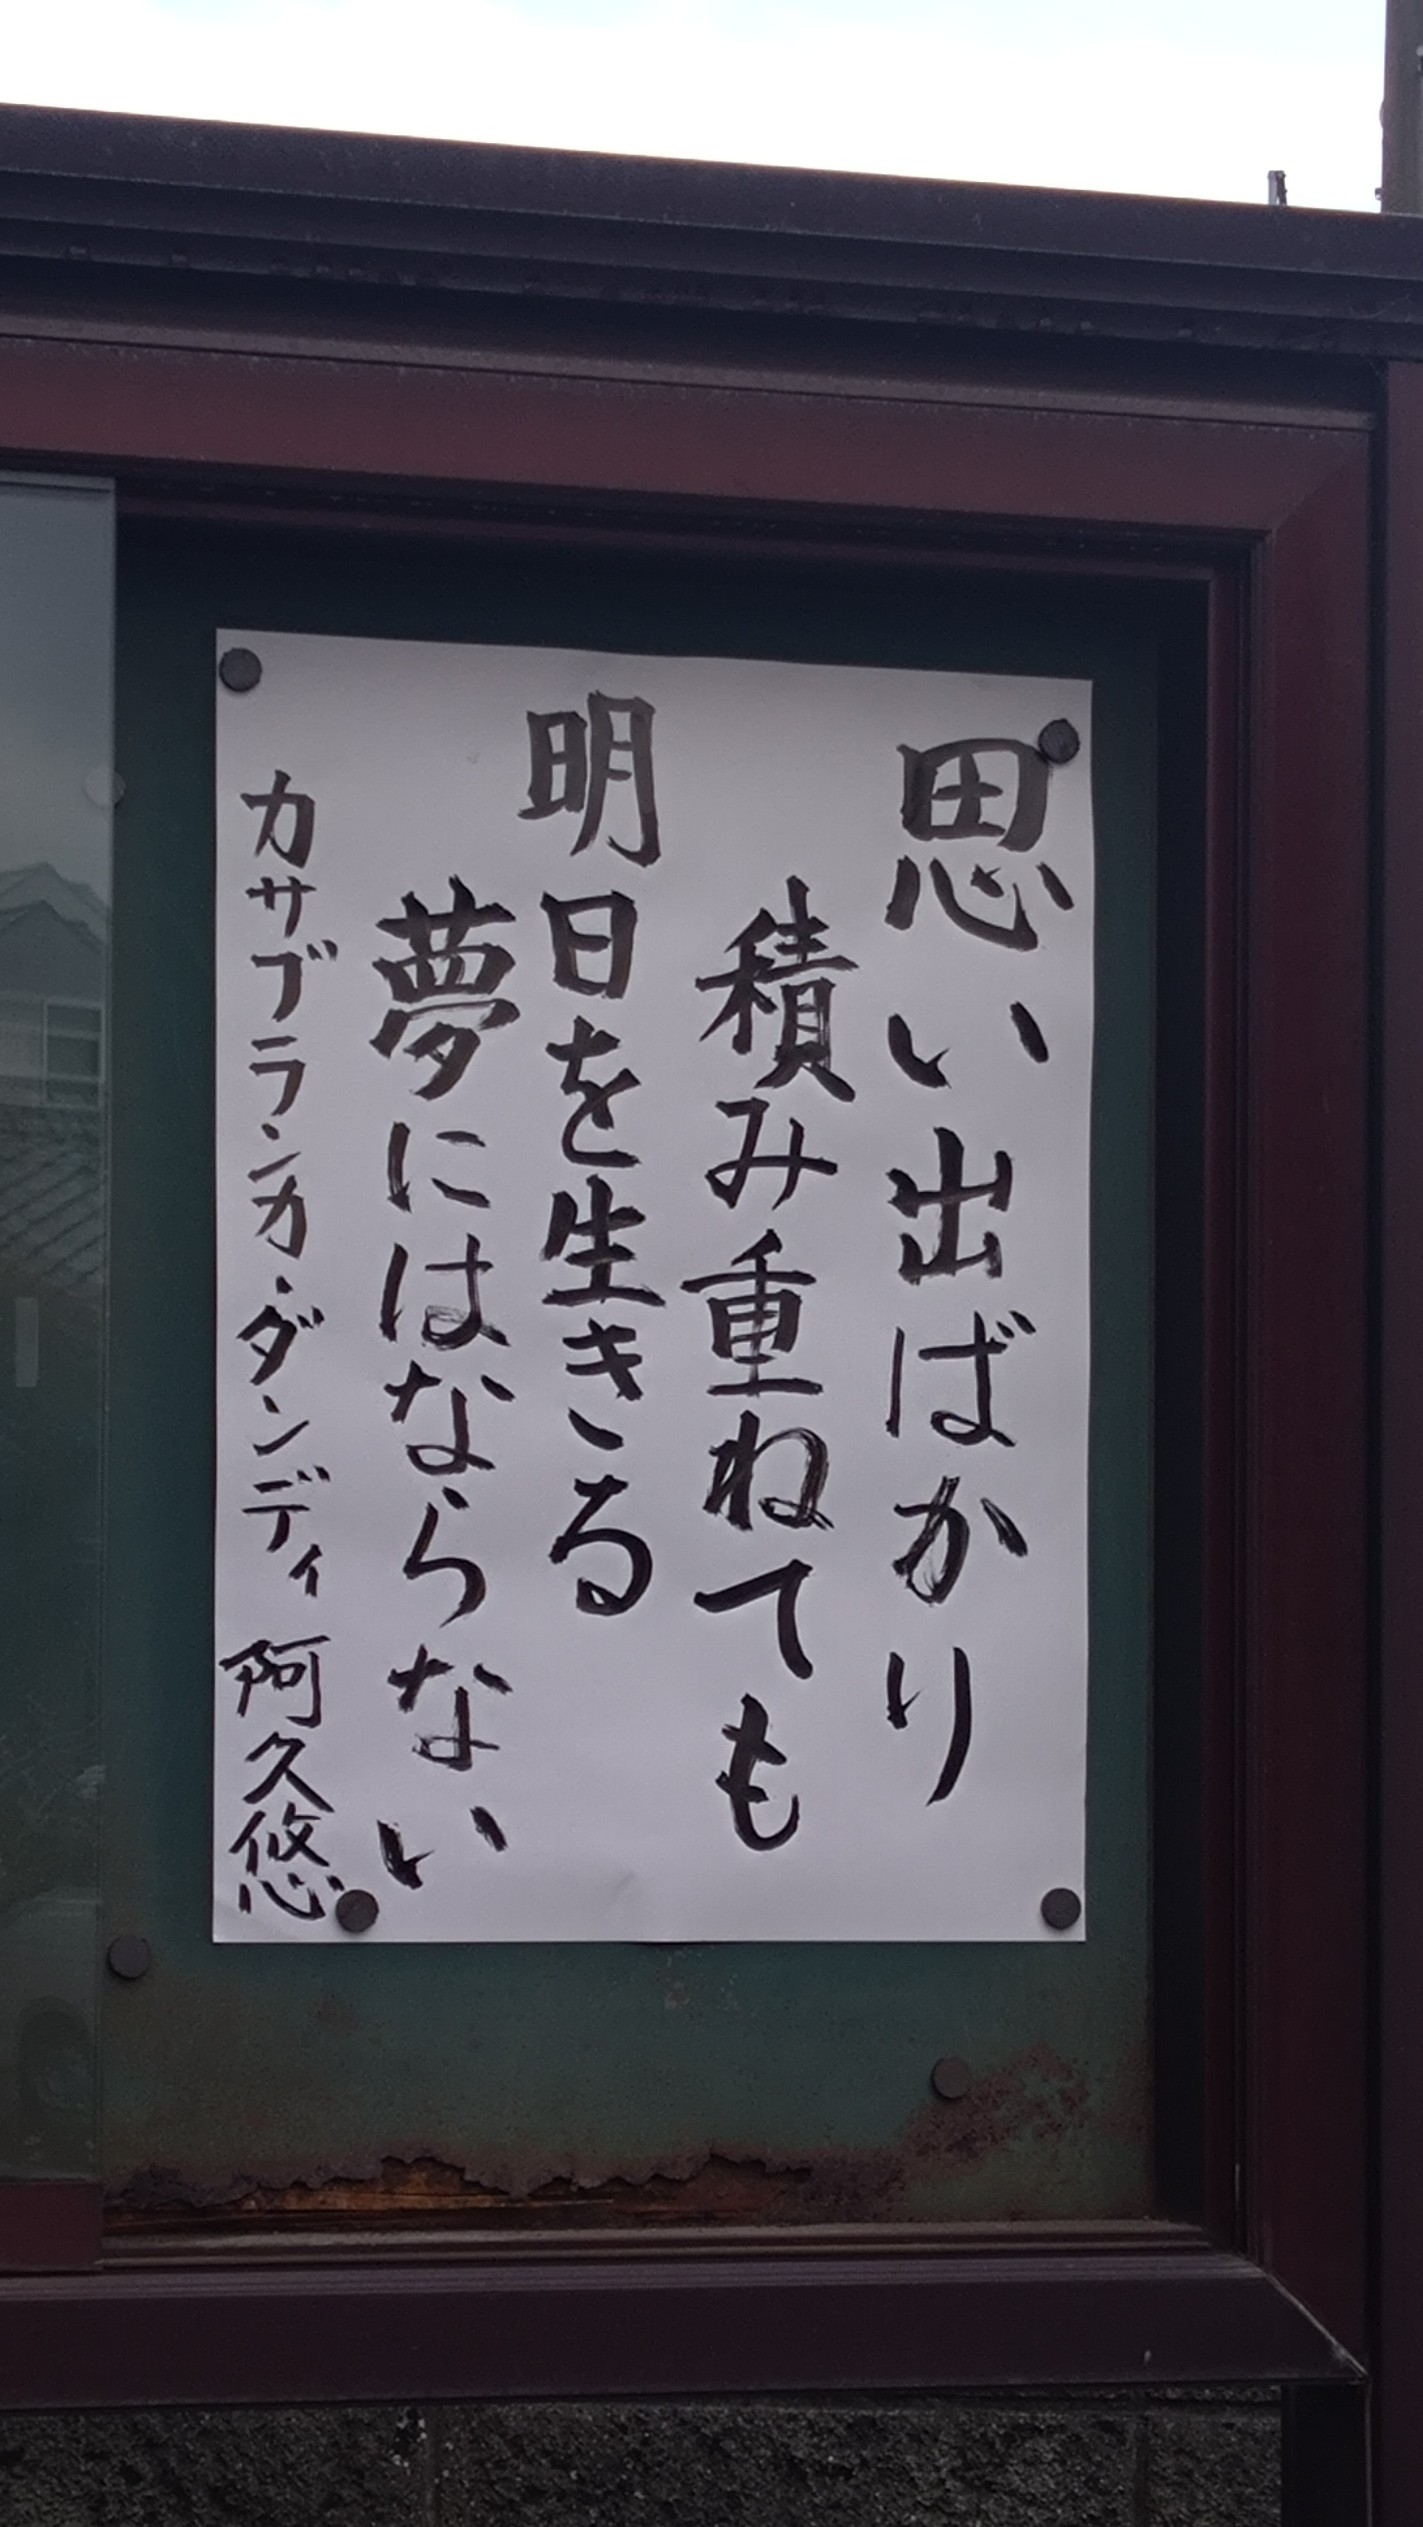 思い出ばかり
積み重ねても
明日を生きる
夢にはならない
カサブランカ・ダンディ 阿久悠